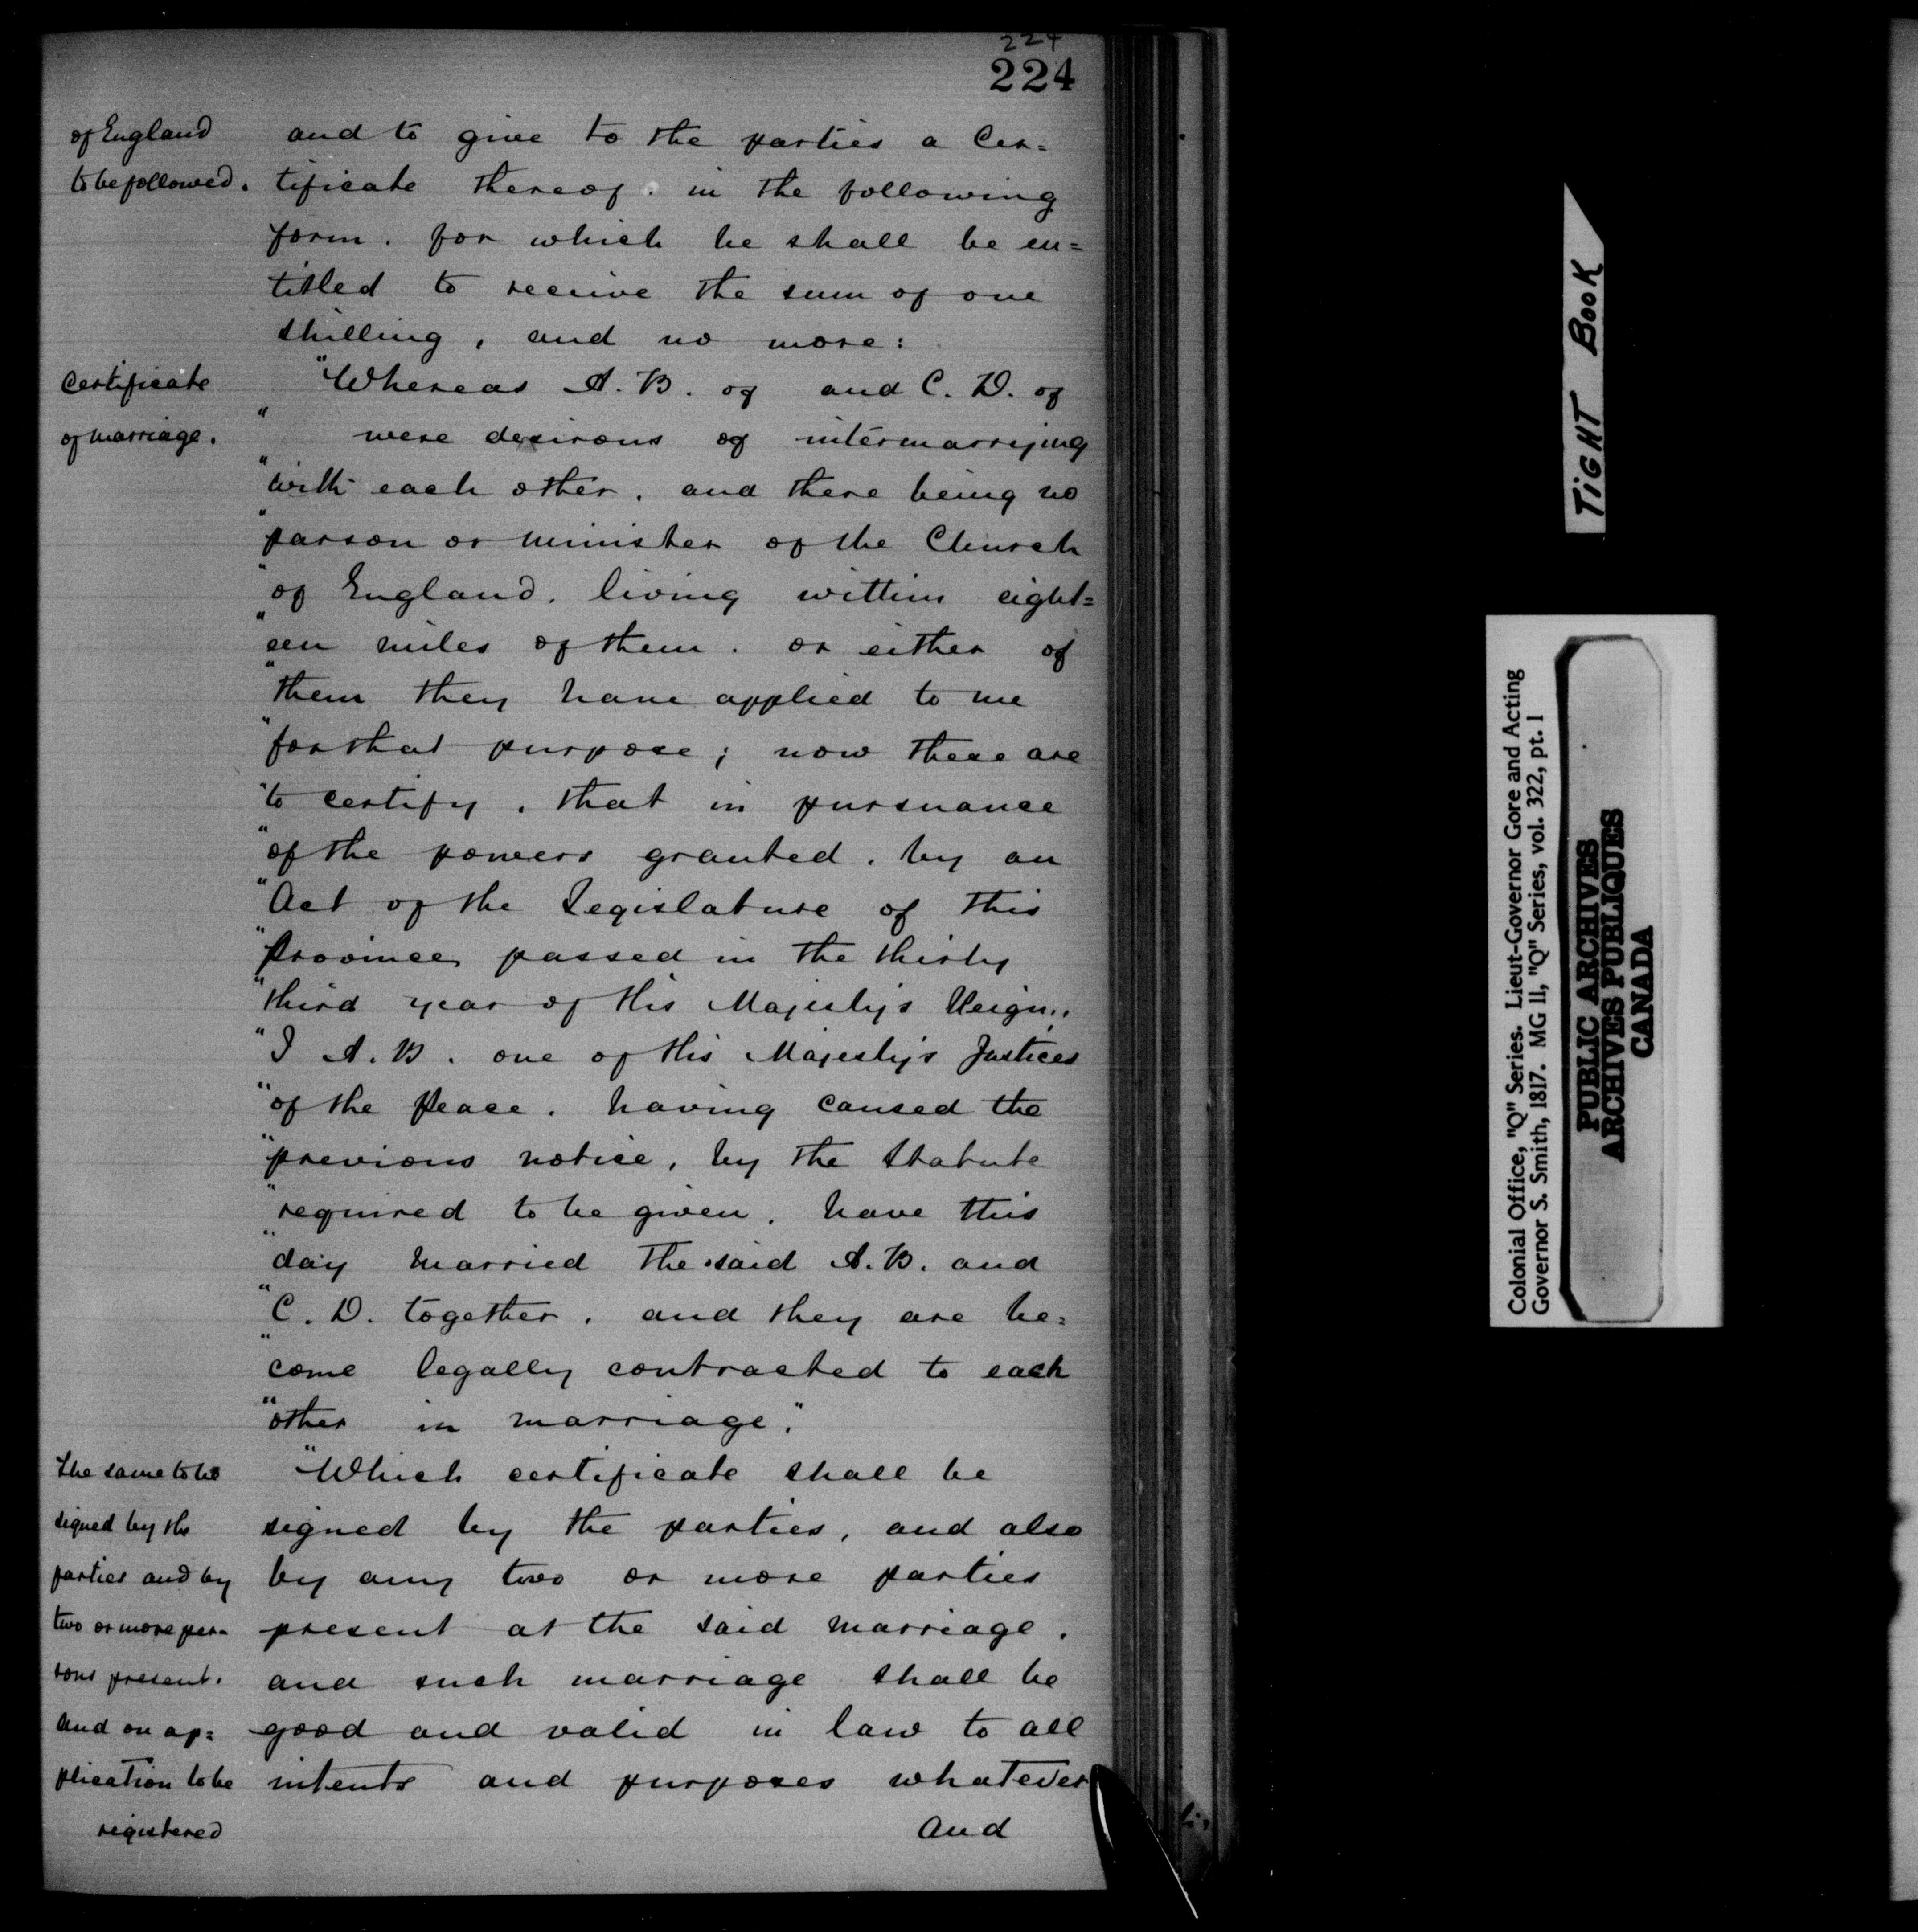 224
224
of England
to be followed.
and to give to the parties a Cer=
tificate thereof. in the following
form. for which he shall be en=
titled to receive the sum of one
shilling, and no more:
Certificate
of marriage.
"Whereas A. B. of and C. D. of
" were desirous of intermarrying
"with each other, and there being no
"parson or minister of the Church
"of England. living within eight=
"een miles of them. or either of
"them they have applied to me
"for that purpose; now these are
"to certify, that in pursuance
"of the powers granted, by an
"Act of the Legislature of this
"Province, passed in the thirty
"third year of His Majesty's Reign,
"I A. B. one of His Majesty's Justices
"of the Peace. having caused the
"previous notice, by the Statute
"required to be given, have this
"day married the said A. B. and
"C. D. together, and they are be=
"come legally contracted to each
"other in marriage."
The same to be
signed by the
parties and by
two or more per=
sons present.
And on ap=
plication to be
registered
"Which certificate shall be
signed by the parties, and also
by any two or more parties
present at the said marriage.
and such marriage shall be
good and valid in law to all
intents and purposes whatever
And
TIGHT BOOK
Colonial Office, "Q" Series. Lieut-Governor Gore and Acting
Governor S. Smith, 1817. MG 11, "Q" Series, vol. 322, pt. 1
PUBLIC ARCHIVES
ARCHIVES PUBLIQUES
CANADA